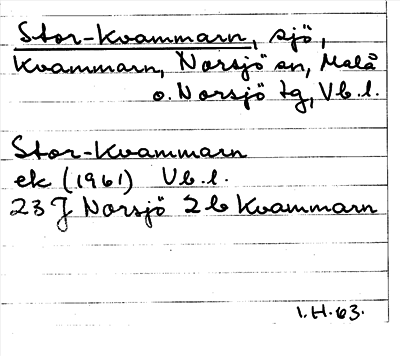 Stor-Kvammarn, sjö,
Kvammarn, Norsjö sn, Malå
o. Norsjö tg, Vb.l.
Stor-Kvammarn
ek (1961) Vb.l.
23 J Norsjö 2 b Kvammarn
I.H.63.